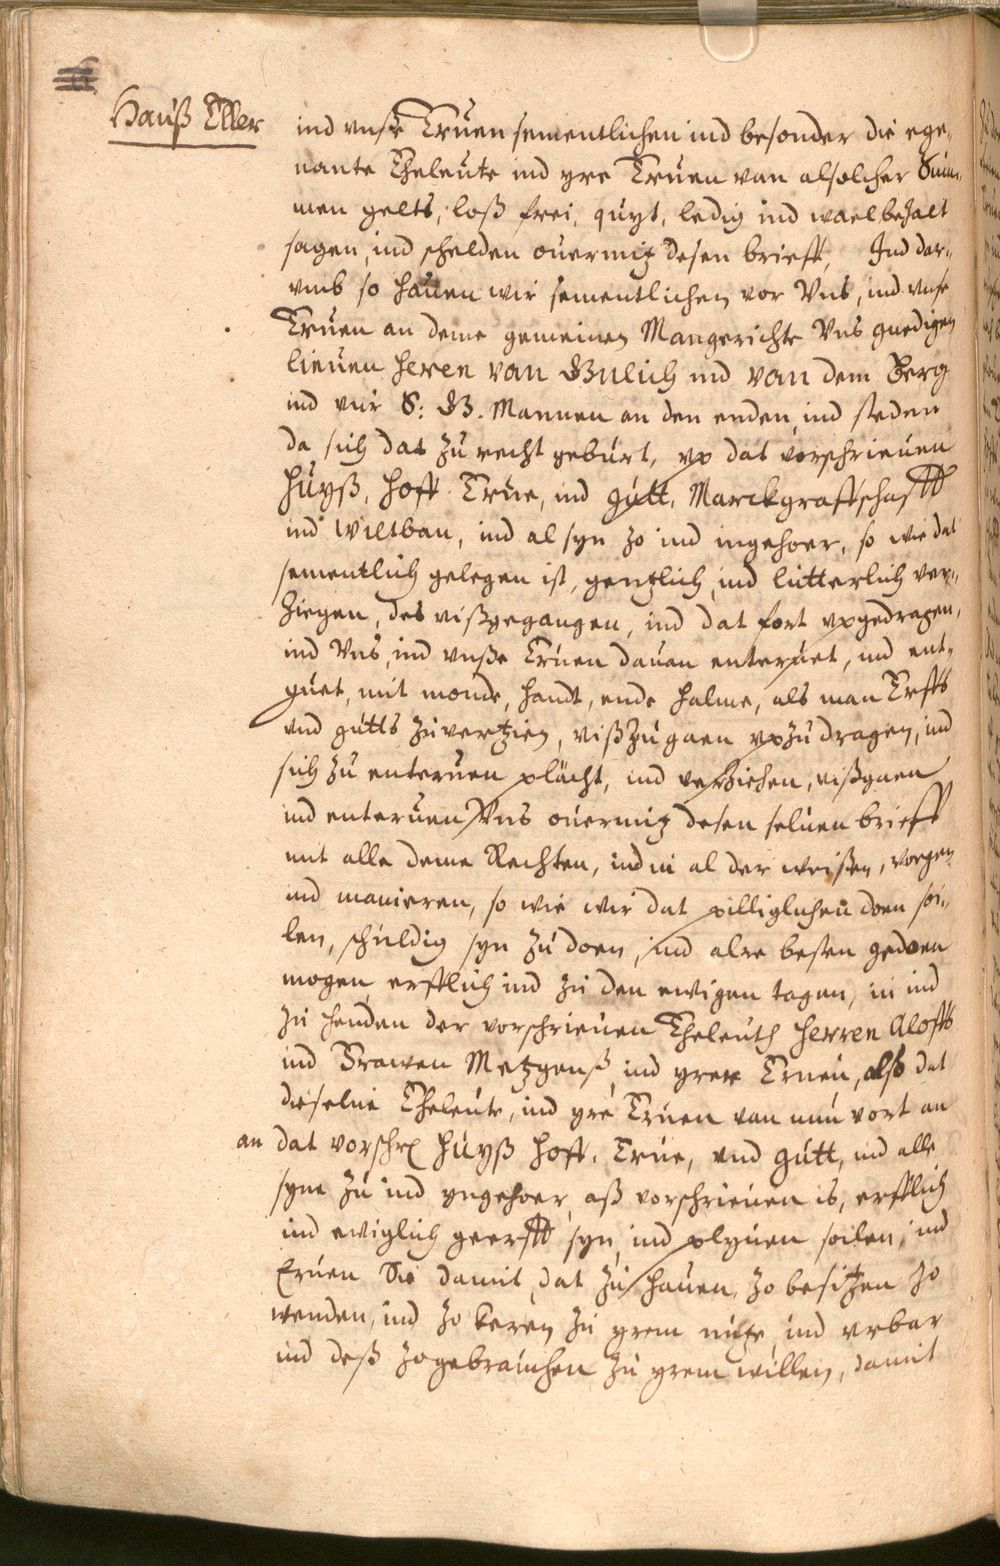 Hauß Eller
ind unße Eruen sementlichen ind besonder die ege„
nante Eheleute ind yre Eruen van alsolcher Sum„
men gelts, loß frei, quyt, ledig ind waelbezalt
sagen, ind schelden ouermitz desen brieff, Ind dar„
umb so hauen wir sementlichen vor Uns, ind unse
Eruen an deme gemeinen Mangerichte Uns gnedigen
lieuen heren van Gulich ind van dem Berg
ind vur S: G. Mannen an den enden, ind steden
da sich dat zu recht geburt, up dat vorschrieuen
huyß, hoff Erue, ind gutt, Marckgraffschafft
ind wiltban, ind al syn zo ind ingehoer, so wie dat
sementlich gelegen ist, gentzlich, ind lutterlich ver„
ziegen, des ußgegangen, ind dat fort upgedragen,
ind Uns, ind unße Eruen dauan enteruet, ind ent„
guet, mit monde, handt, ende halme, als man Erffs
und gutts zuvertzien, ußzugaen upzudragen, ind
sich zu enteruen plächt, ind verziehen, ußgaen
ind enteruen Uns ouermitz desen seluen brieff
mit alle deme Rechten, ind in al der weißen, vorgen
ind manieren, so wie wir dat pilliglichen doen soi„
len, schuldig syn zu doen, ind alre besten gedoen
mogen erfflich ind zu den ewigen tagen, in ind
zu henden der vorschrieuen Eheleuth herren Aloffs
ind Frawen Metzgenß, ind yrer Eruen, also dat
dieselue Eheleute, ind yre Eruen van nun vort an
an dat vorschr huyß hoff, Erue, und gutt, ind alle
syne zu ind yngehoer, aß vorschrieuen is, erfflich
ind ewiglich geerfft syn, ind plyuen soilen, ind
Eruen Sie damit, dat zu hauen, zo besitzen zo
wenden, ind zo keren zu yrem nutze ind urbar
ind deß zogebrauchen zu yrem willen, damit